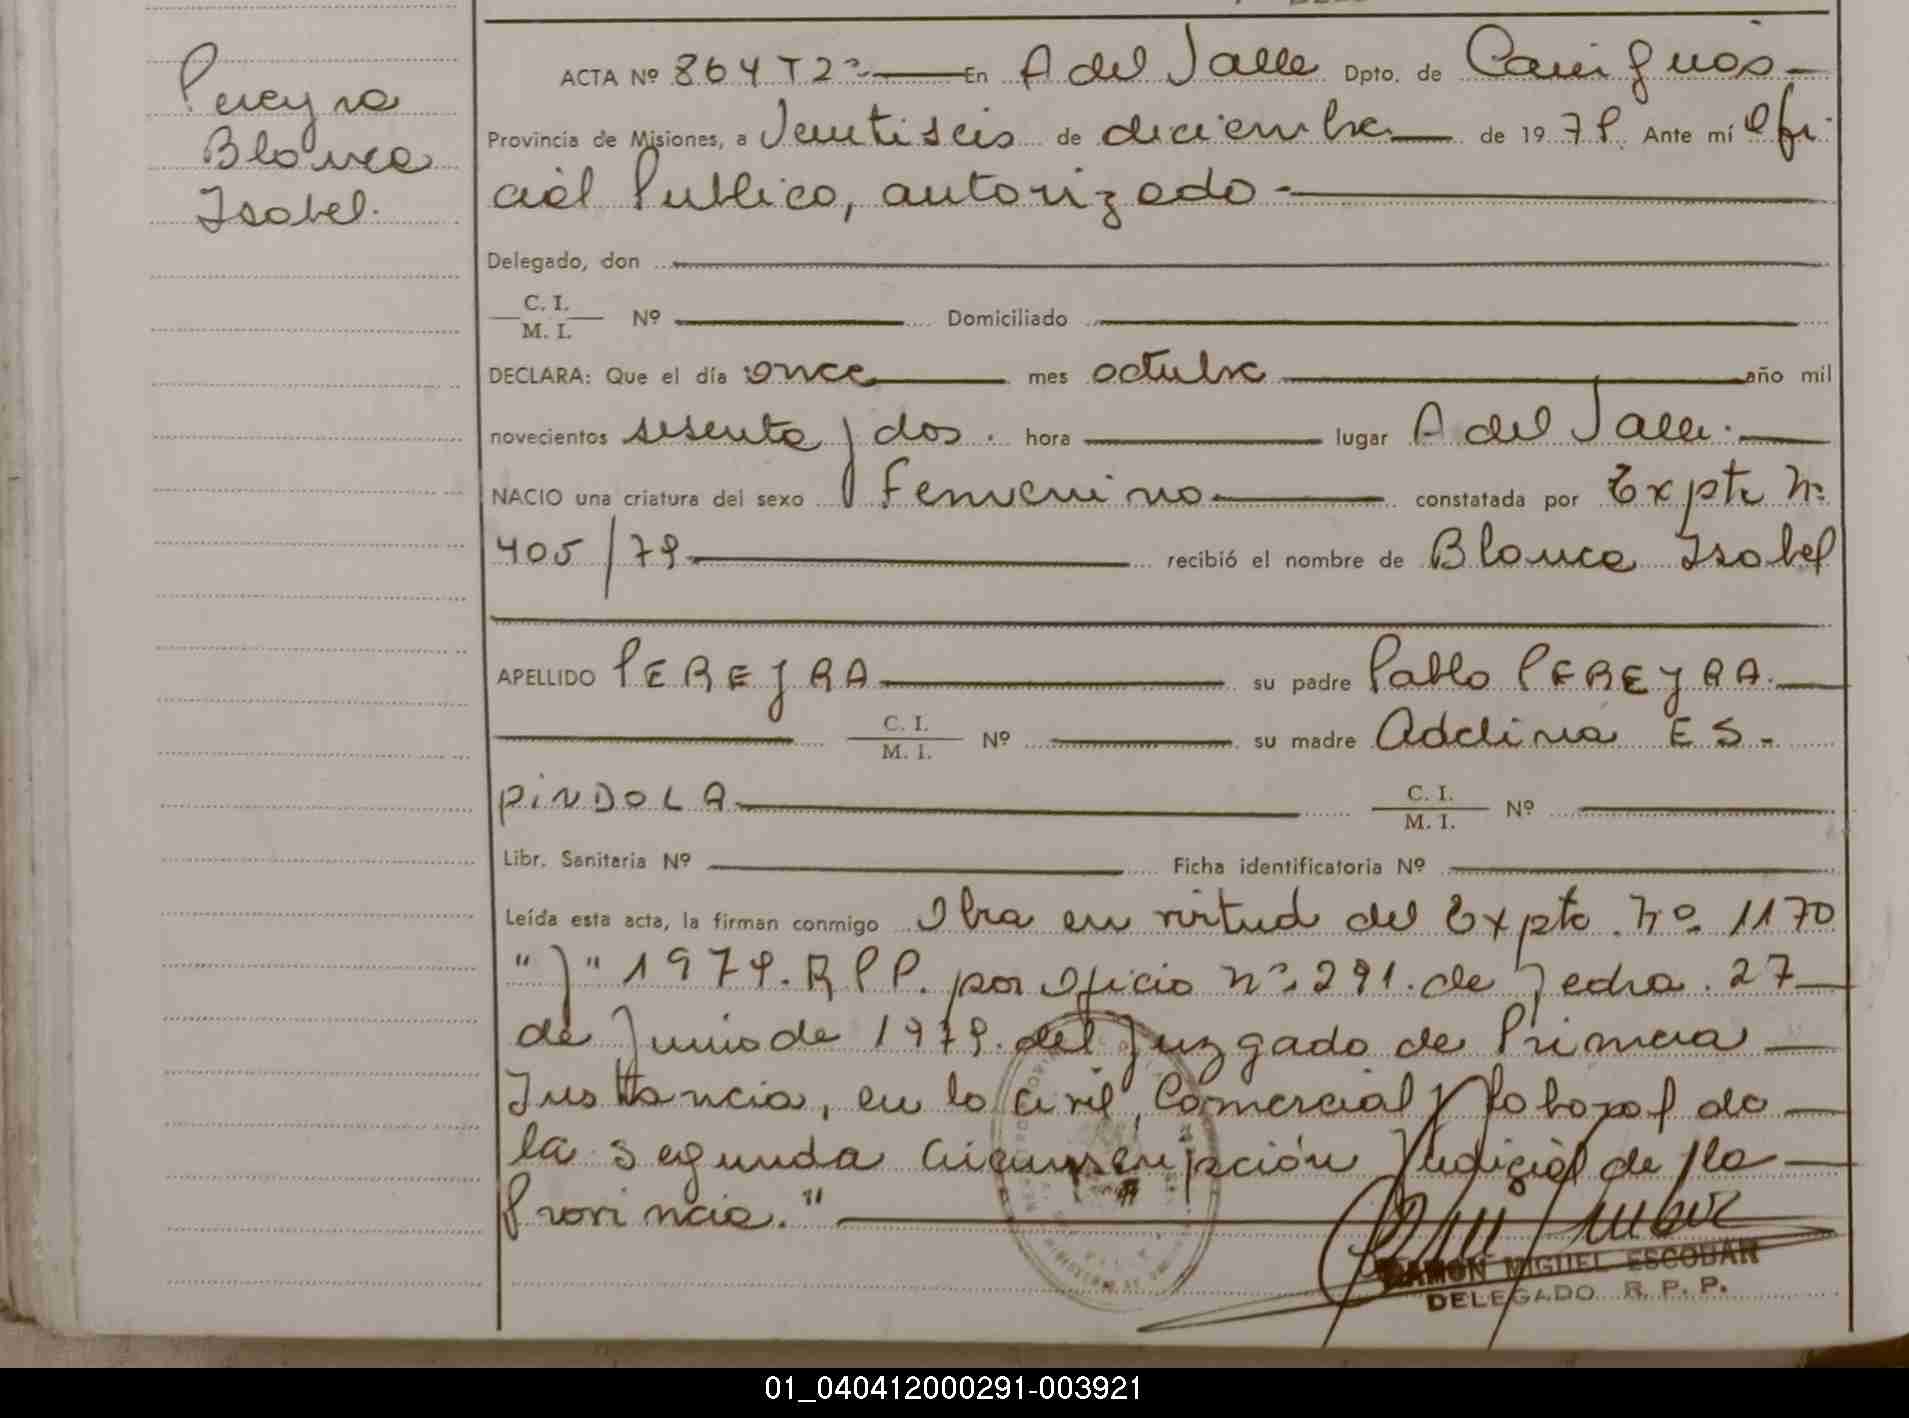 Pereyra
Blanca
Isabel.
ACTA Nº 864 T 2º En A del Valle Dpto. de Cainguás
Provincia de Misiones, a Veintiseis de diciembre de 1979. Ante mí Ofi
cial Publico, autorizado
Delegado, don
C. I.
M. I. Nº Domiciliado
DECLARA: Que el día once mes octubre año mil
novecientos sesenta y dos. hora lugar A del Valle.
NACIO una criatura del sexo Femenino constatada por Expte Nº
405/79 recibió el nombre de Blanca Isabel
APELLIDO PEREYRA su padre Pablo PEREYRA.
C. I.
M. I. Nº su madre Adelina ES-
PINDOLA C. I.
M. I. Nº
Libr. Sanitaria Nº Ficha identificatoria Nº
Leída esta acta, la firman conmigo Obra en virtud del Expte. Nº 1170
"J" 1979. R P P. por oficio Nº 291. de fecha. 27
de Junio de 1979. del Juzgado de Primera
Instancia, en lo Civil, Comercial y laboral de
la segunda Circunscripción Judicial de la
Provincia."
RAMON MIGUEL ESCOBAR
DELEGADO R. P. P.
01_040412000291-003921